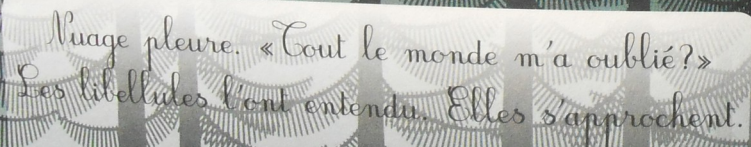 Nuage pleure. «Tout le monde m'a oublié?»
Les libellules l'ont entendu. Elles s'approchent.